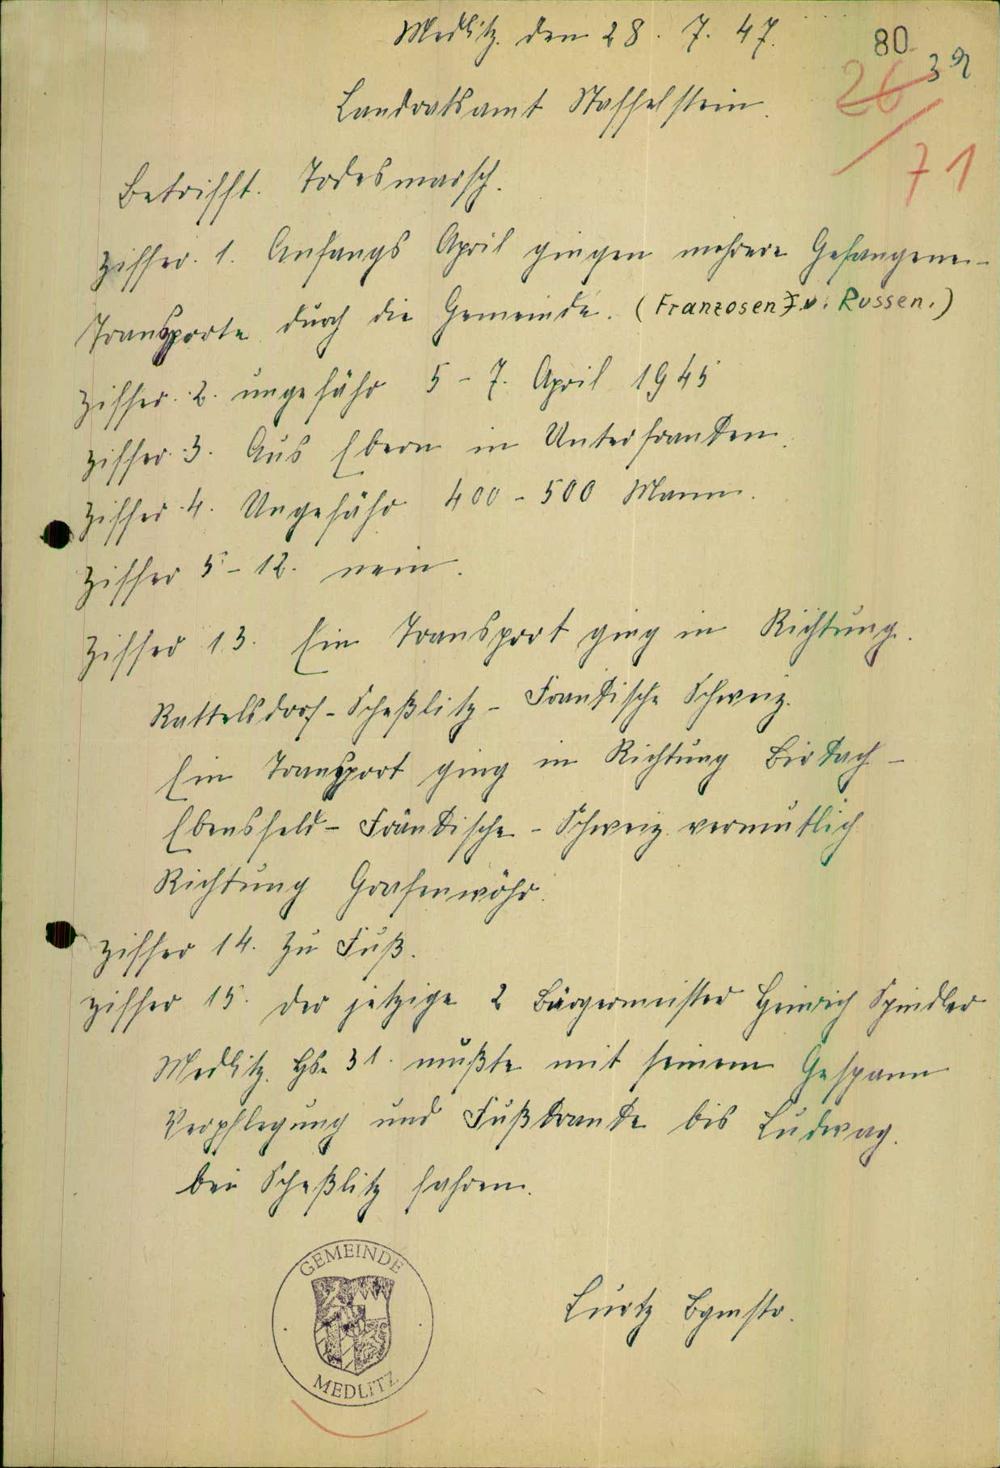 Medlitz. den 28. 7. 47.
80
39
26
71
Landratsamt Staffelstein.
Betrifft. Todesmarsch.
Ziffer. 1. Anfangs April gingen mehrere Gefangenen-
Transporte durch die Gemeinde. (Franzosen u. Russen.)
Ziffer. 2. ungefähr 5 - 7. April 1945
Ziffer. 3. Aus Ebern in Unterfranken.
Ziffer 4. Ungefähr 400 - 500 Mann.
Ziffer 5 - 12. nein.
Ziffer 13. Ein Transport ging in Richtung.
Rattelsdorf - Scheßlitz - Fränkische Schweiz.
Ein Transport ging in Richtung Birkach -
Ebensfeld - Fränkische - Schweiz vermutlich
Richtung Grafenwöhr.
Ziffer 14. Zu Fuß.
Ziffer 15. der jetzige 2 Bürgermeister Heinrich Spindler
Medlitz. Hs. 31. mußte mit seinem Gespann
Verpflegung und Fußkranke bis Ludwag.
bei Scheßlitz fahren.
GEMEINDE
MEDLITZ
Lurtz Bgmstr.